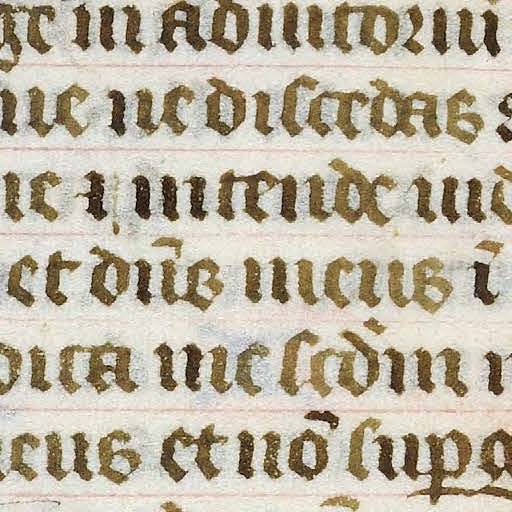 ge in adiutoriu
ne ne discedas
ne i intende iud
et dn̄s meus ī
dica me scd̄m
eus et nō sup